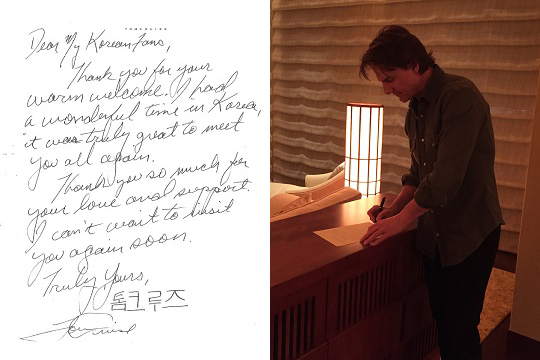 TOM CRUISE
Dear My Korean Fans,
Thank you for your
warm welcome. I had
a wonderful time in Korea,
it was truly great to meet
you all again.
Thank you so much for
your love and support.
I can't wait to visit
you again soon.
Truly Yours,
톰크루즈